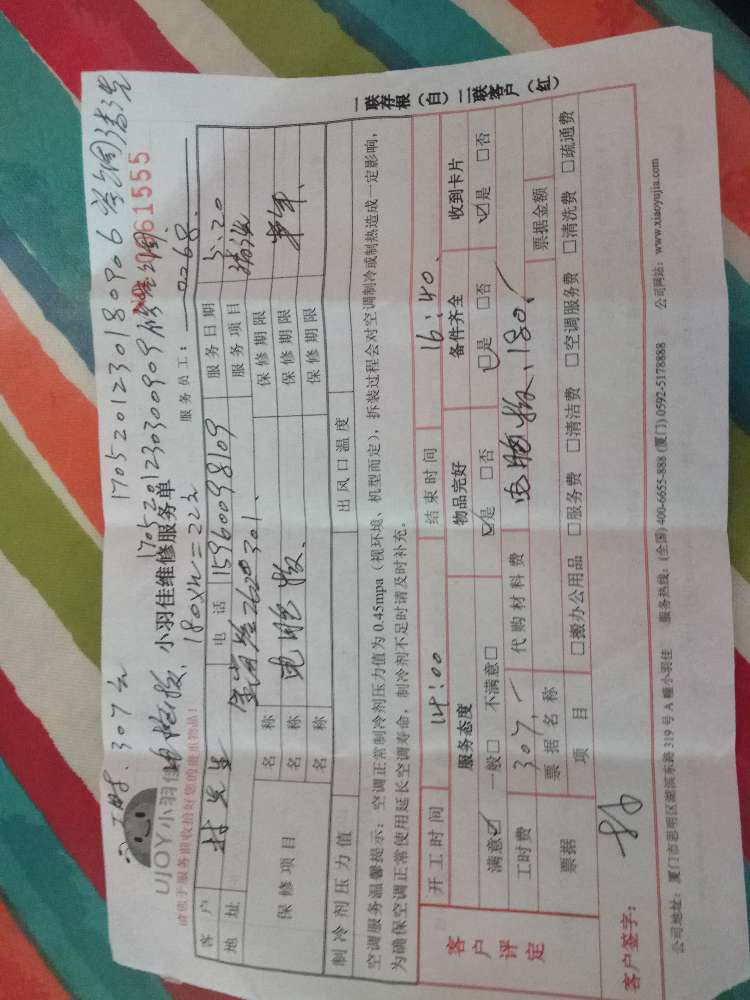 307元 1705201230180906 空调清洗
170520123030 0909
UJOY小羽佳 小羽佳维修服务单 0061555
电脑板、180
请您于服务前收拾好您的贵重物品!
服务员工: 0068
客户 林先生 电话 15960098109 服务日期 5.20
地址 2620 301、 服务项目 清洗
保修项目 名称 电脑板、 保修期限 半年、
名称 保修期限
名称 保修期限
制冷剂压力值 出风口温度
空调服务温馨提示: 空调正常制冷剂压力值为 0.45mpa (视环境、机型而定), 拆装过程会对空调制冷或制热造成一定影响,
为确保空调正常使用延长空调寿命, 制冷剂不足时请及时补充。
客户评定 开工时间 14:00 结束时间 16:40、
服务态度 物品完好 备件齐全 收到卡片
满意☑ 一般□ 不满意□ ☑是 □否 ☑是 □否 ☑是 □否
工时费 307,— 代购材料费 电脑板、180、
票据 票据名称 票据金额
项目 □搬办公用品 □服务费 □清洁费 □空调服务费 □清洗费 □疏通费
客户签字:
公司地址: 厦门市思明区湖滨东路 319 号 A 幢小羽佳 服务热线: (全国) 400-6655-888 (厦门) 0592-5178888 公司网站: www.xiaoyujia.com
一联存根(白) 二联客户(红)